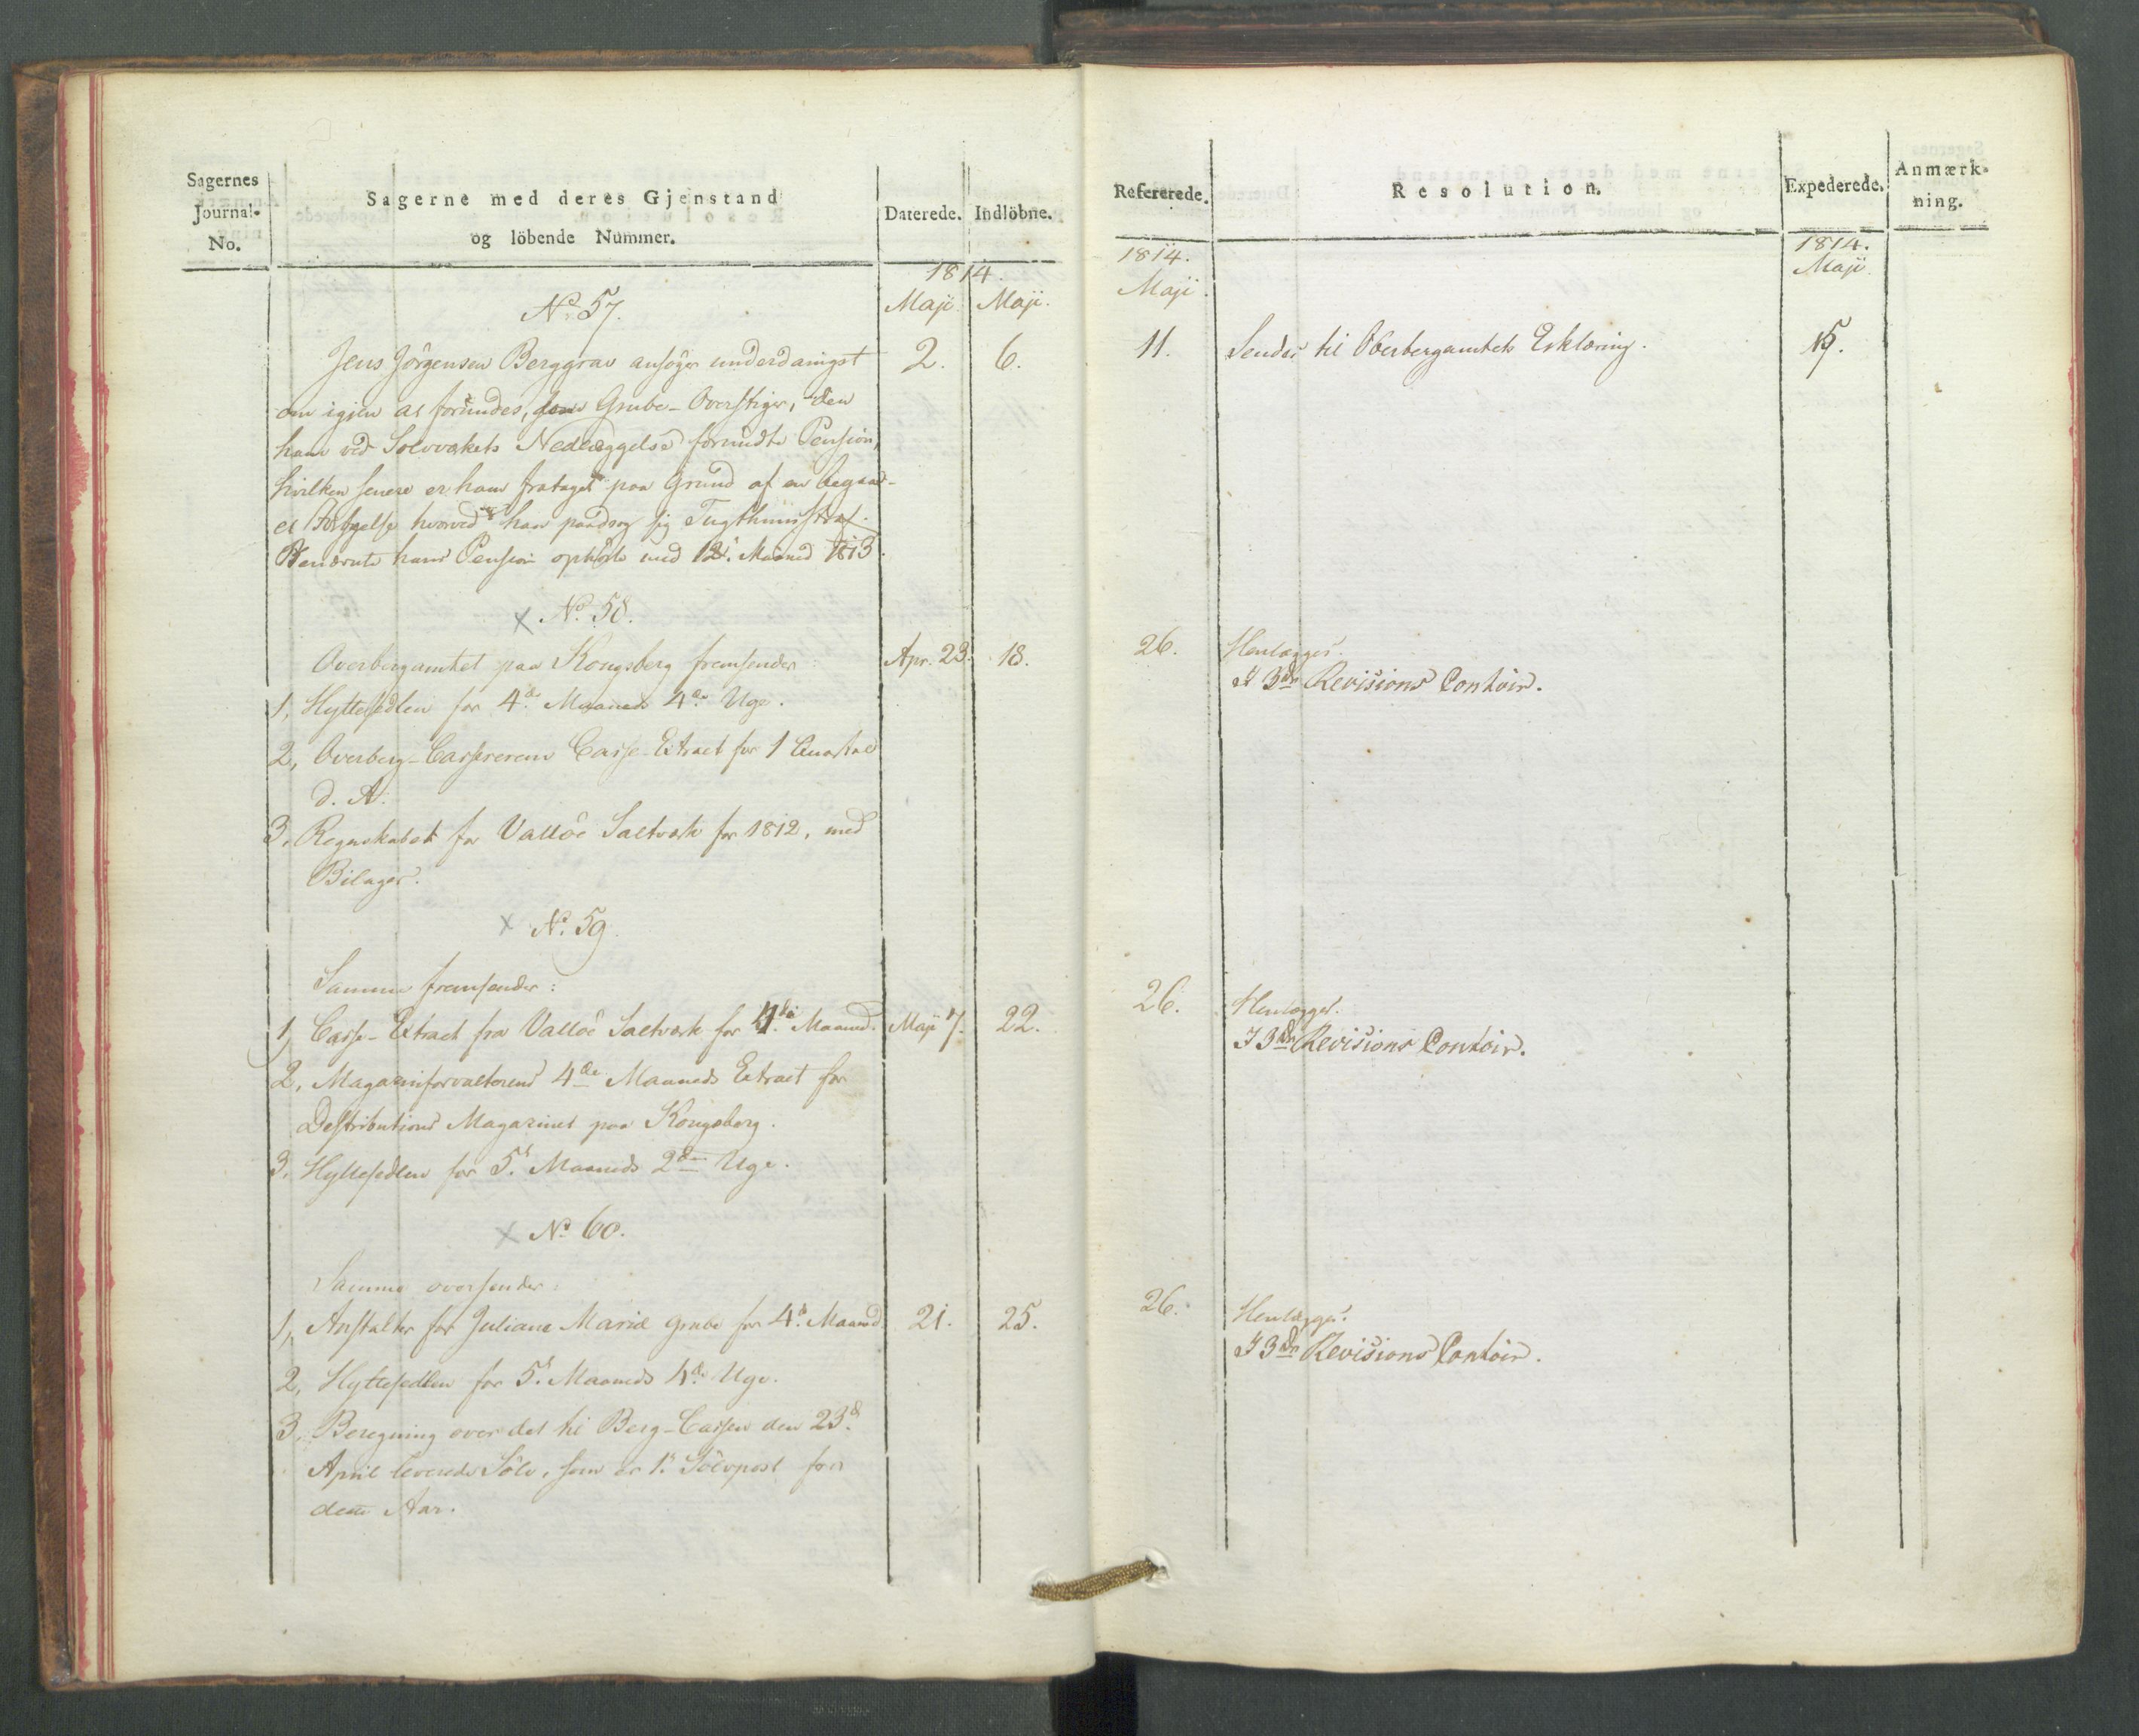 Sagernes
Journal-
No.
Sagerne med deres Gjenstand
og löbende Nummer.
Daterede.
Indlöbne.
1814.
Maji
Maji.
No. 57.
Jens Jörgensen Berggrav ansöger underdanigst
2.
6.
om igjen at forundes, som Grube-Overstiger, den
ham ved Sölvværkets Nedlæggelse forundte Pension,
hvilken senere er ham frataget paa Grund af en begaa-
et Forbrydelse hvorved han paadrog sig Tugthuusstraf.
hans Pension ophörte med 12te Maaned 1813.
× No. 58.
Overbergamtet paa Kongsberg fremsender:
Apr. 23.
18.
1, Hyttesedlen for 4de Maaneds 4de Uge.
2, Overberg-Cassererens Casse-Extract for 1 Quartal
d. A.
3, Regnskabet for Vallöe Saltværk for 1812, med
Bilager.
× No. 59.
Samme fremsender:
1, Casse-Extract fra Vallöe Saltværk for 4de Maaned.
Maji 7.
22.
2, Magazinforvalterens 4de Maaneds Extract for
Distributions Magazinet paa Kongsberg.
3, Hyttesedlen for 5te Maaneds 2den Uge.
× No. 60.
Samme oversender:
1, Anstalter for Juliane Maria Grube for 4de Maaned
21.
25.
2, Hyttesedlen for 5te Maaneds 4de Uge.
3, Beregning over det til Berg-Cassen den 23de
April leverede Sölv, som er 1te Sölvpost for
dette Aar.
Refererede.
Resolution.
Expederede.
Anmærk-
ning.
1814.
Maji.
1814.
Maji
11.
Sendes til Oberbergamtets Erklæring.
15.
26.
Henlægges.
I 3die Revisions Contoir.
26.
Henlægges.
I 3die Revisions Contoir.
26.
Henlægges.
I 3die Revisions Contoir.